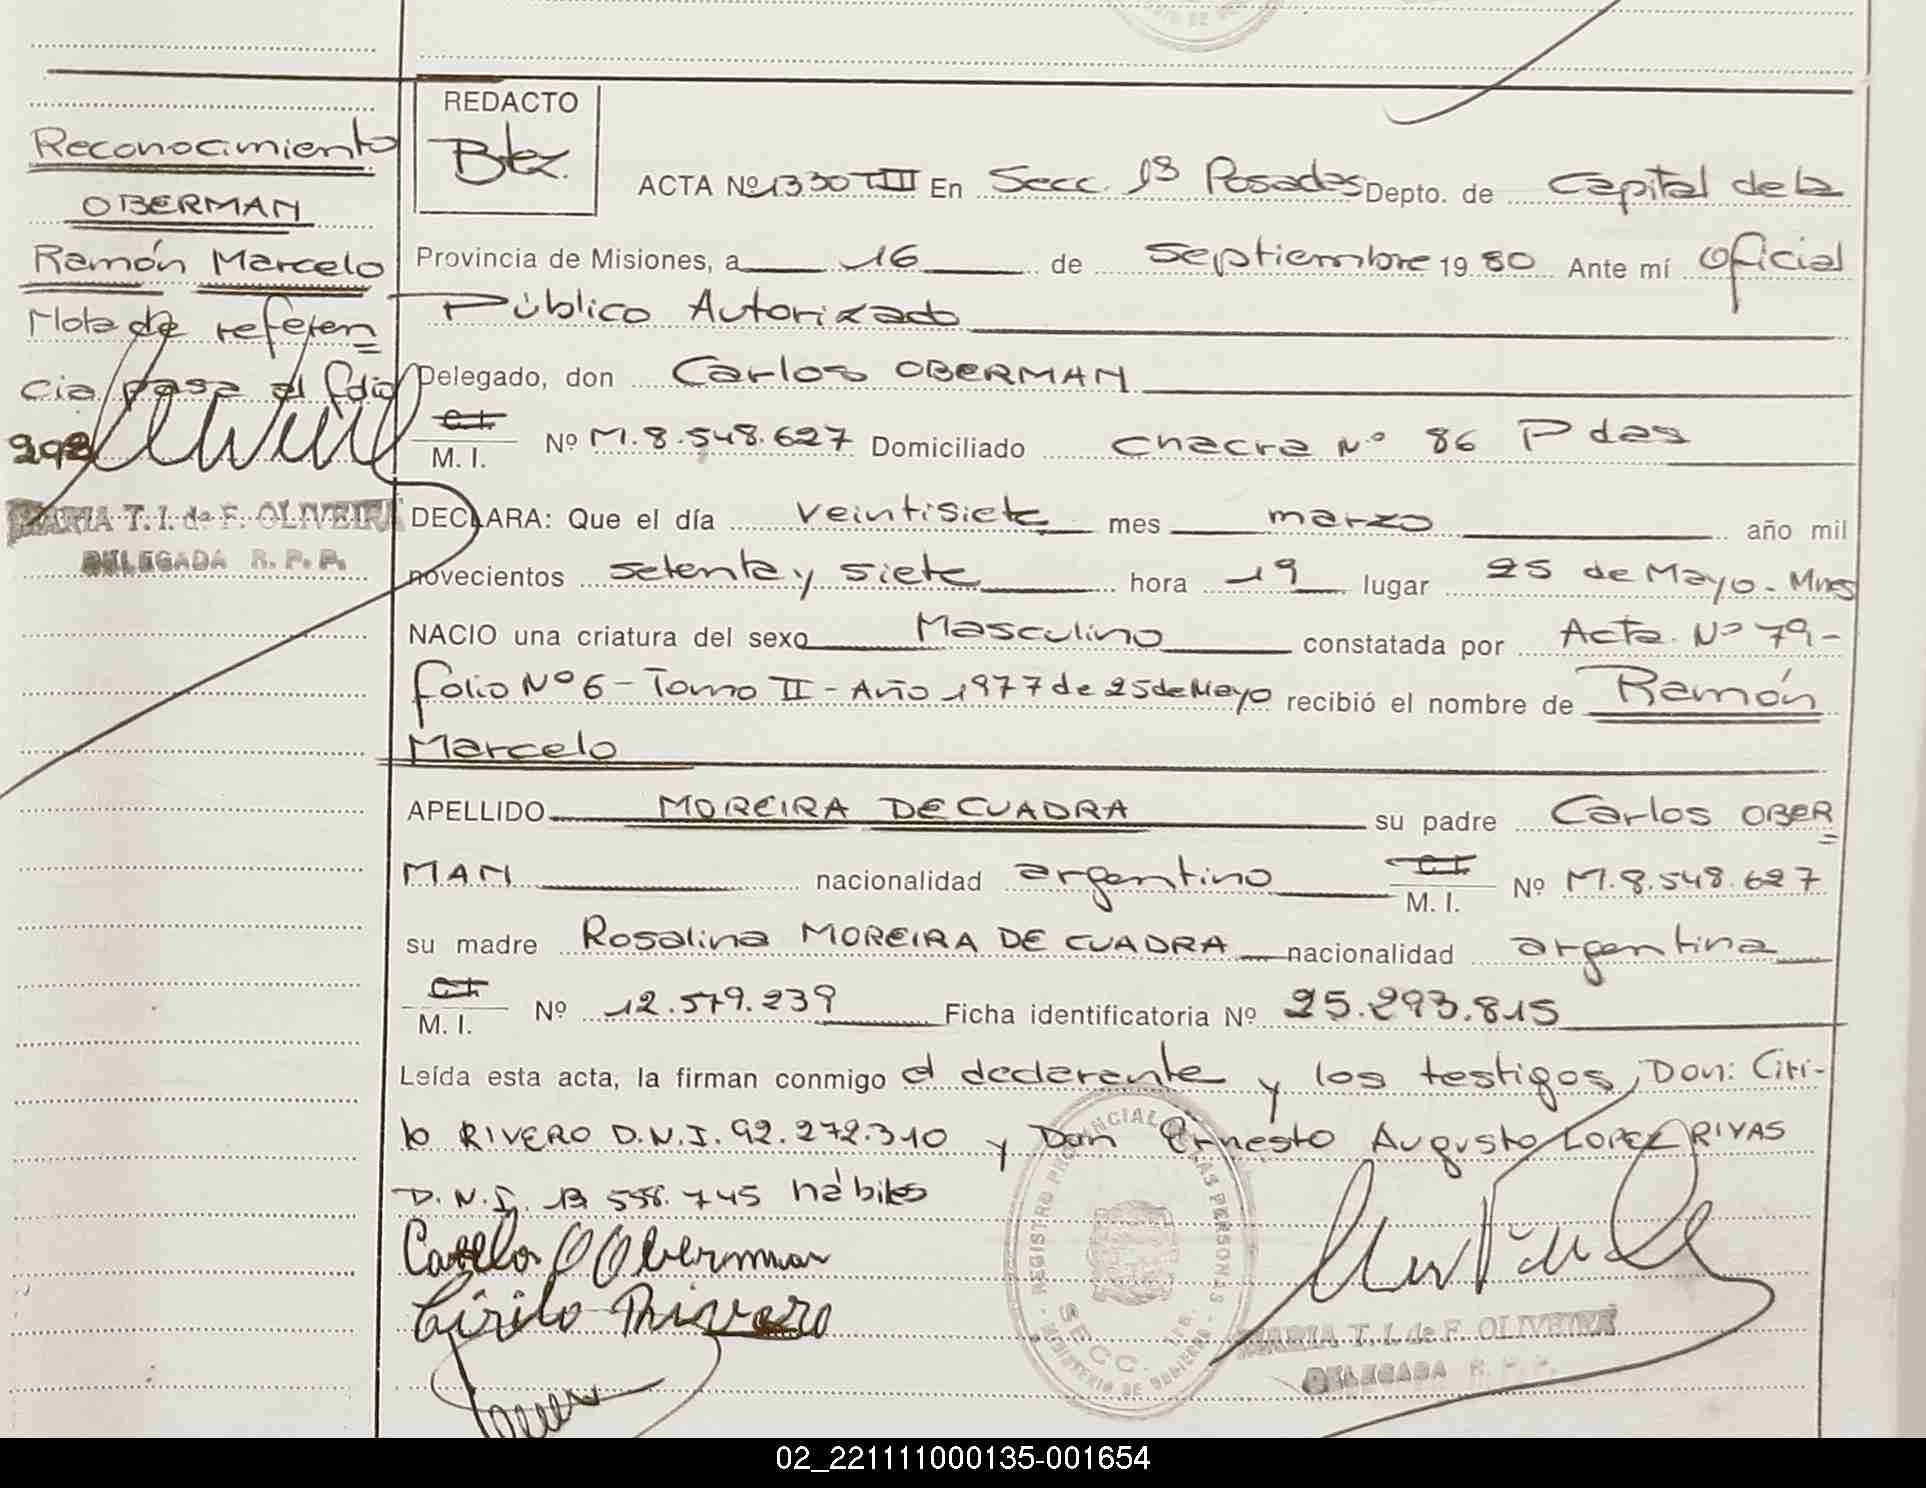 Reconocimiento
OBERMAN
Ramón Marcelo
Nota de referen
cia pasa al folio
298
MARIA T. I. de F. OLIVEIRA
DELEGADA R. P. P.
REDACTO
Btez.
ACTA Nº 1330 T III En Secc. 1ª Posadas Depto. de Capital de la
Provincia de Misiones, a 16 de septiembre 19 80 Ante mí Oficial
Público Autorizado
Delegado, don Carlos OBERMAN
C.I.
M. I. Nº M. 8.548.627 Domiciliado chacra Nº 86 Pdas
DECLARA: Que el día veintisiete mes marzo año mil
novecientos setenta y siete hora 19 lugar 25 de Mayo - Mnes
NACIO una criatura del sexo Masculino constatada por Acta Nº 79-
folio Nº 6 - Tomo II - Año 1977 de 25 de Mayo recibió el nombre de Ramón
Marcelo
APELLIDO MOREIRA DE CUADRA su padre Carlos OBER
MAN nacionalidad argentino C.I. M. I. Nº M. 8.548.627
su madre Rosalina MOREIRA DE CUADRA nacionalidad argentina
C.I.
M. I. Nº 12.579.239 Ficha identificatoria Nº 25.293.815
Leída esta acta, la firman conmigo el declarante y los testigos, Don: Ciri-
lo RIVERO D.N.I. 92.272.310 y Don Ernesto Augusto LOPEZ RIVAS
D.N.I. 13.558.745 hábiles
Carlo Oberman
Cirilo Rivero
REGISTRO PROVINCIAL DE LAS PERSONAS
SECC. 1ra.
MINISTERIO DE GOBIERNO
MARIA T. I. de F. OLIVEIRA
DELEGADA R. P. P.
02_221111000135-001654